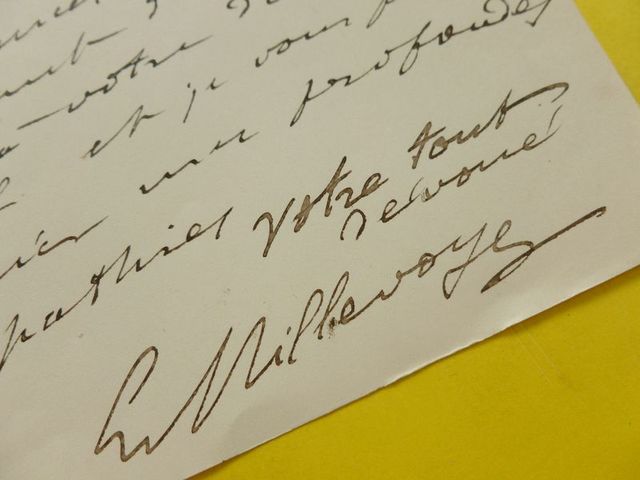 votre
et je vous
mes profondes
pathies votre tout
dévoué
L Millevoye